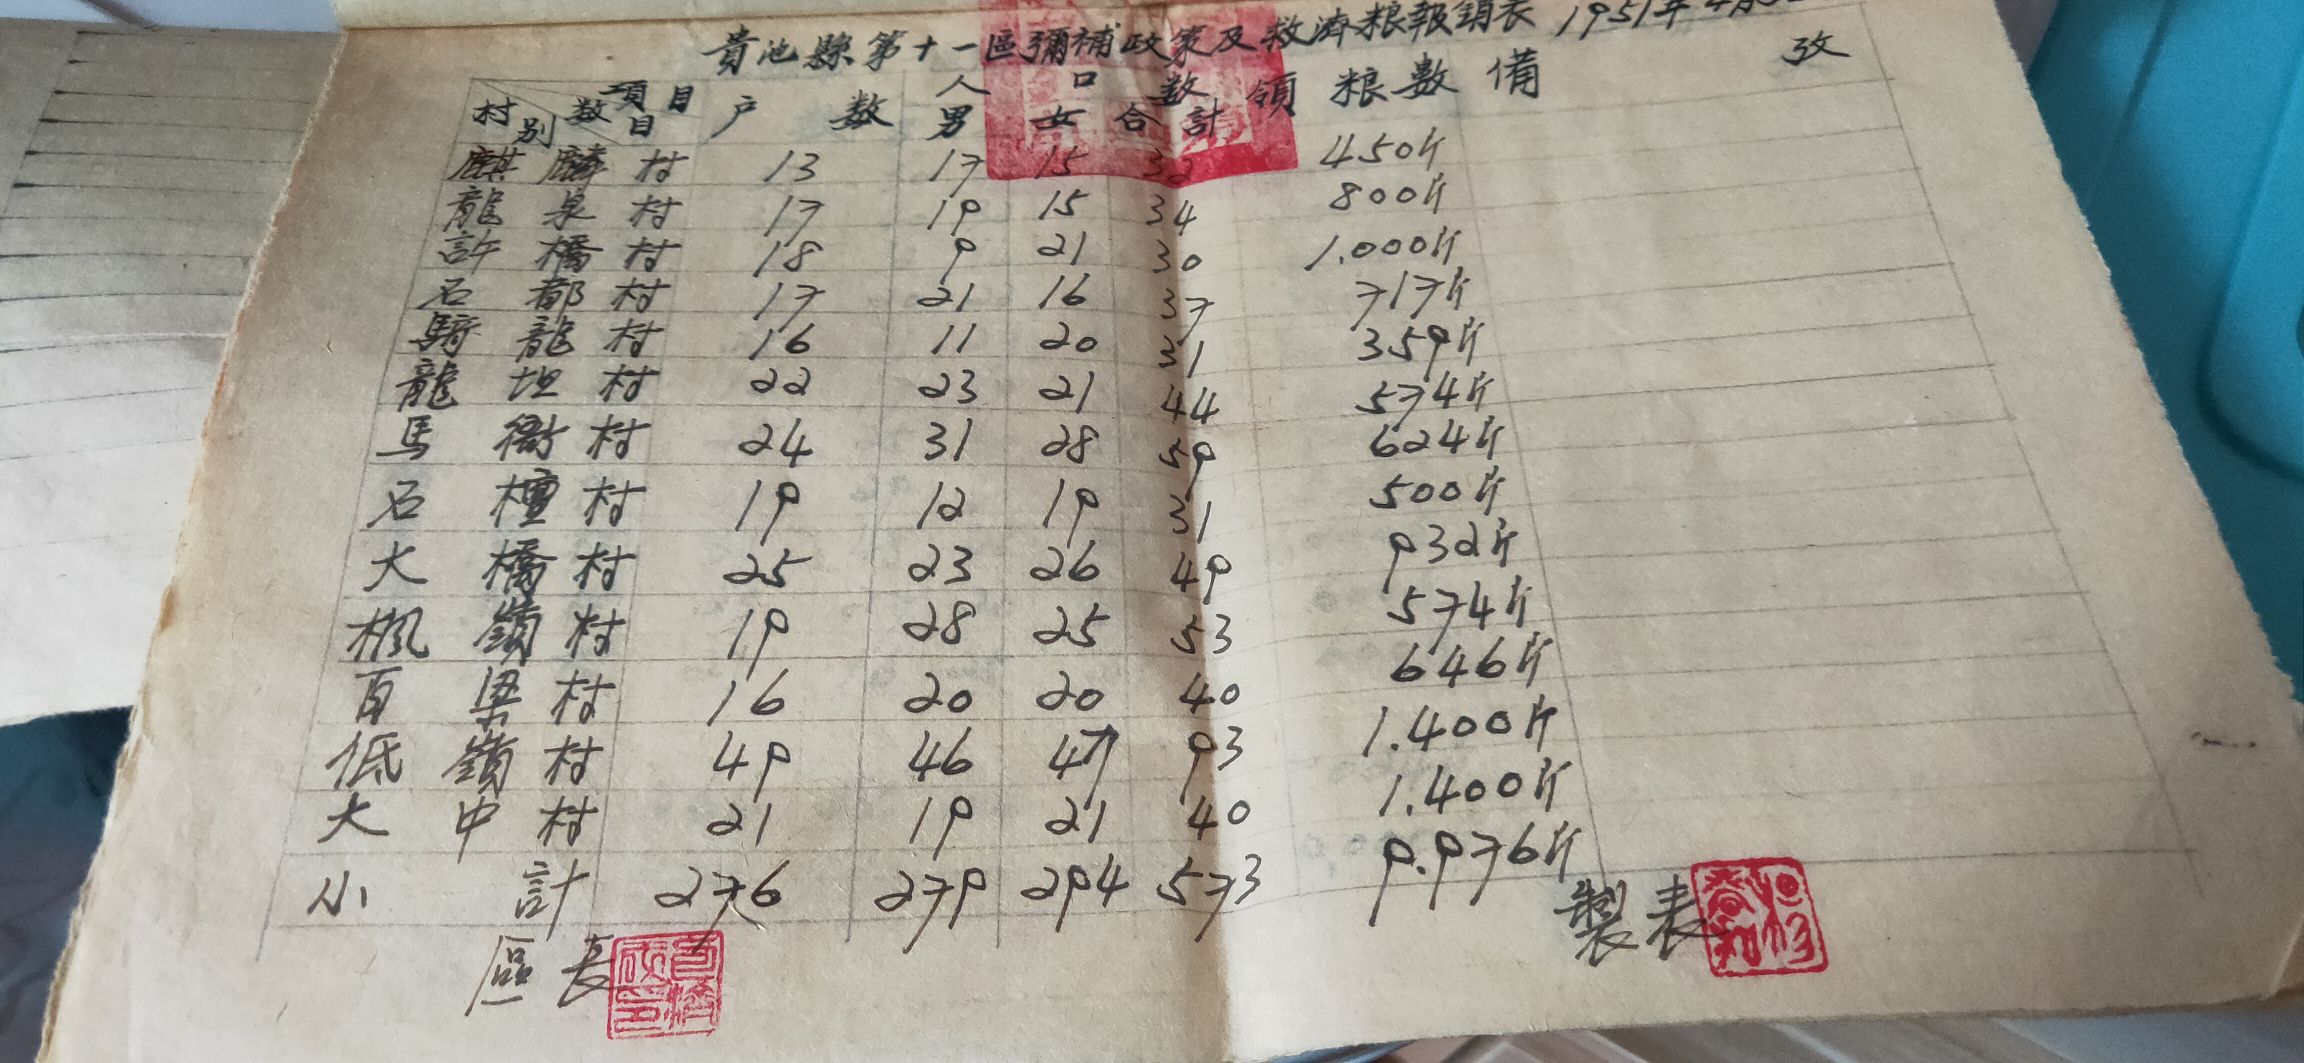 貴池縣第十一區彌補政策及救濟粮報銷表 1951年4月
村別 数目 項目 户数 人口数 男 女 合計 領粮數 備攷
麒麟村 13 17 15 32 450斤
龍泉村 17 19 15 34 800斤
許橋村 18 9 21 30 1.000斤
石都村 17 21 16 37 717斤
騎龍村 16 11 20 31 359斤
龍坦村 22 23 21 44 574斤
馬衙村 24 31 28 59 624斤
石檀村 19 12 19 31 500斤
大橋村 25 23 26 49 932斤
楓嶺村 19 28 25 53 574斤
百梁村 16 20 20 40 646斤
低嶺村 49 46 47 93 1.400斤
大中村 21 19 21 40 1.400斤
小計 276 279 294 573 9.976斤
區長
製表